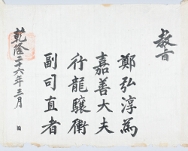 敎旨
鄭弘淳爲
嘉善大夫
行龍驤衛
副司直者
乾隆二十六年三月 日